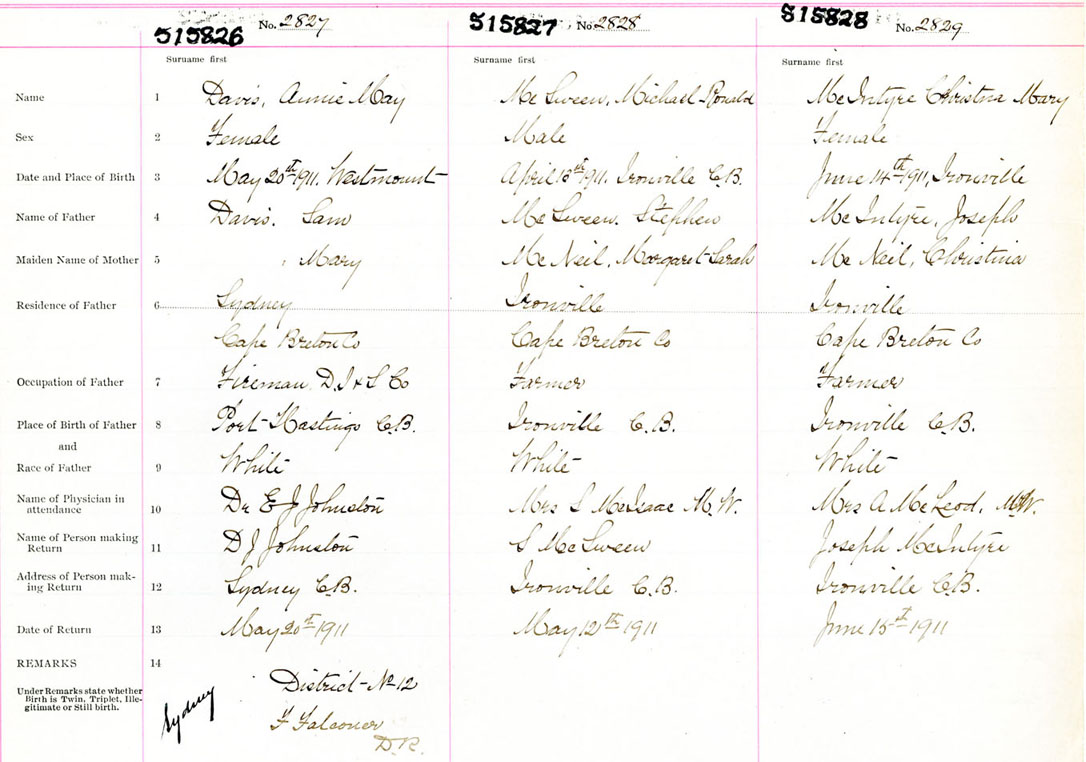 515826 No. 2827 515827 No. 2828 515828 No. 2829
Surname first Surname first Surname first
Name 1 Davis, Annie May McSween, Michael Ronald McIntyre Christina Mary
Sex 2 Female Male Female
Date and Place of Birth 3 May 20th 1911. Westmount April 13th 1911. Ironville C.B. June 14th 1911, Ironville
Name of Father 4 Davis. Sam McSween. Stephen McIntyre, Joseph
Maiden Name of Mother 5 , Mary McNeil, Margaret Sarah McNeil, Christina
Residence of Father 6 Sydney Ironville Ironville
Cape Breton Co Cape Breton Co Cape Breton Co
Occupation of Father 7 Fireman D.I & S Co Farmer Farmer
Place of Birth of Father 8 Port Hastings C.B. Ironville C.B. Ironville C.B.
and
Race of Father 9 White White White
Name of Physician in
attendance 10 Dr E J Johnston Mrs S McIsaac M.W. Mrs A McLeod, M.W.
Name of Person making
Return 11 D J Johnston S McSween Joseph McIntyre
Address of Person mak-
ing Return 12 Sydney C.B. Ironville C.B. Ironville C.B.
Date of Return 13 May 20th 1911 May 12th 1911 June 15th 1911
REMARKS 14
Under Remarks state whether
Birth is Twin, Triplet, Ille-
gitimate or Still birth.
Sydney
District No 12
F Falconer
D.R.